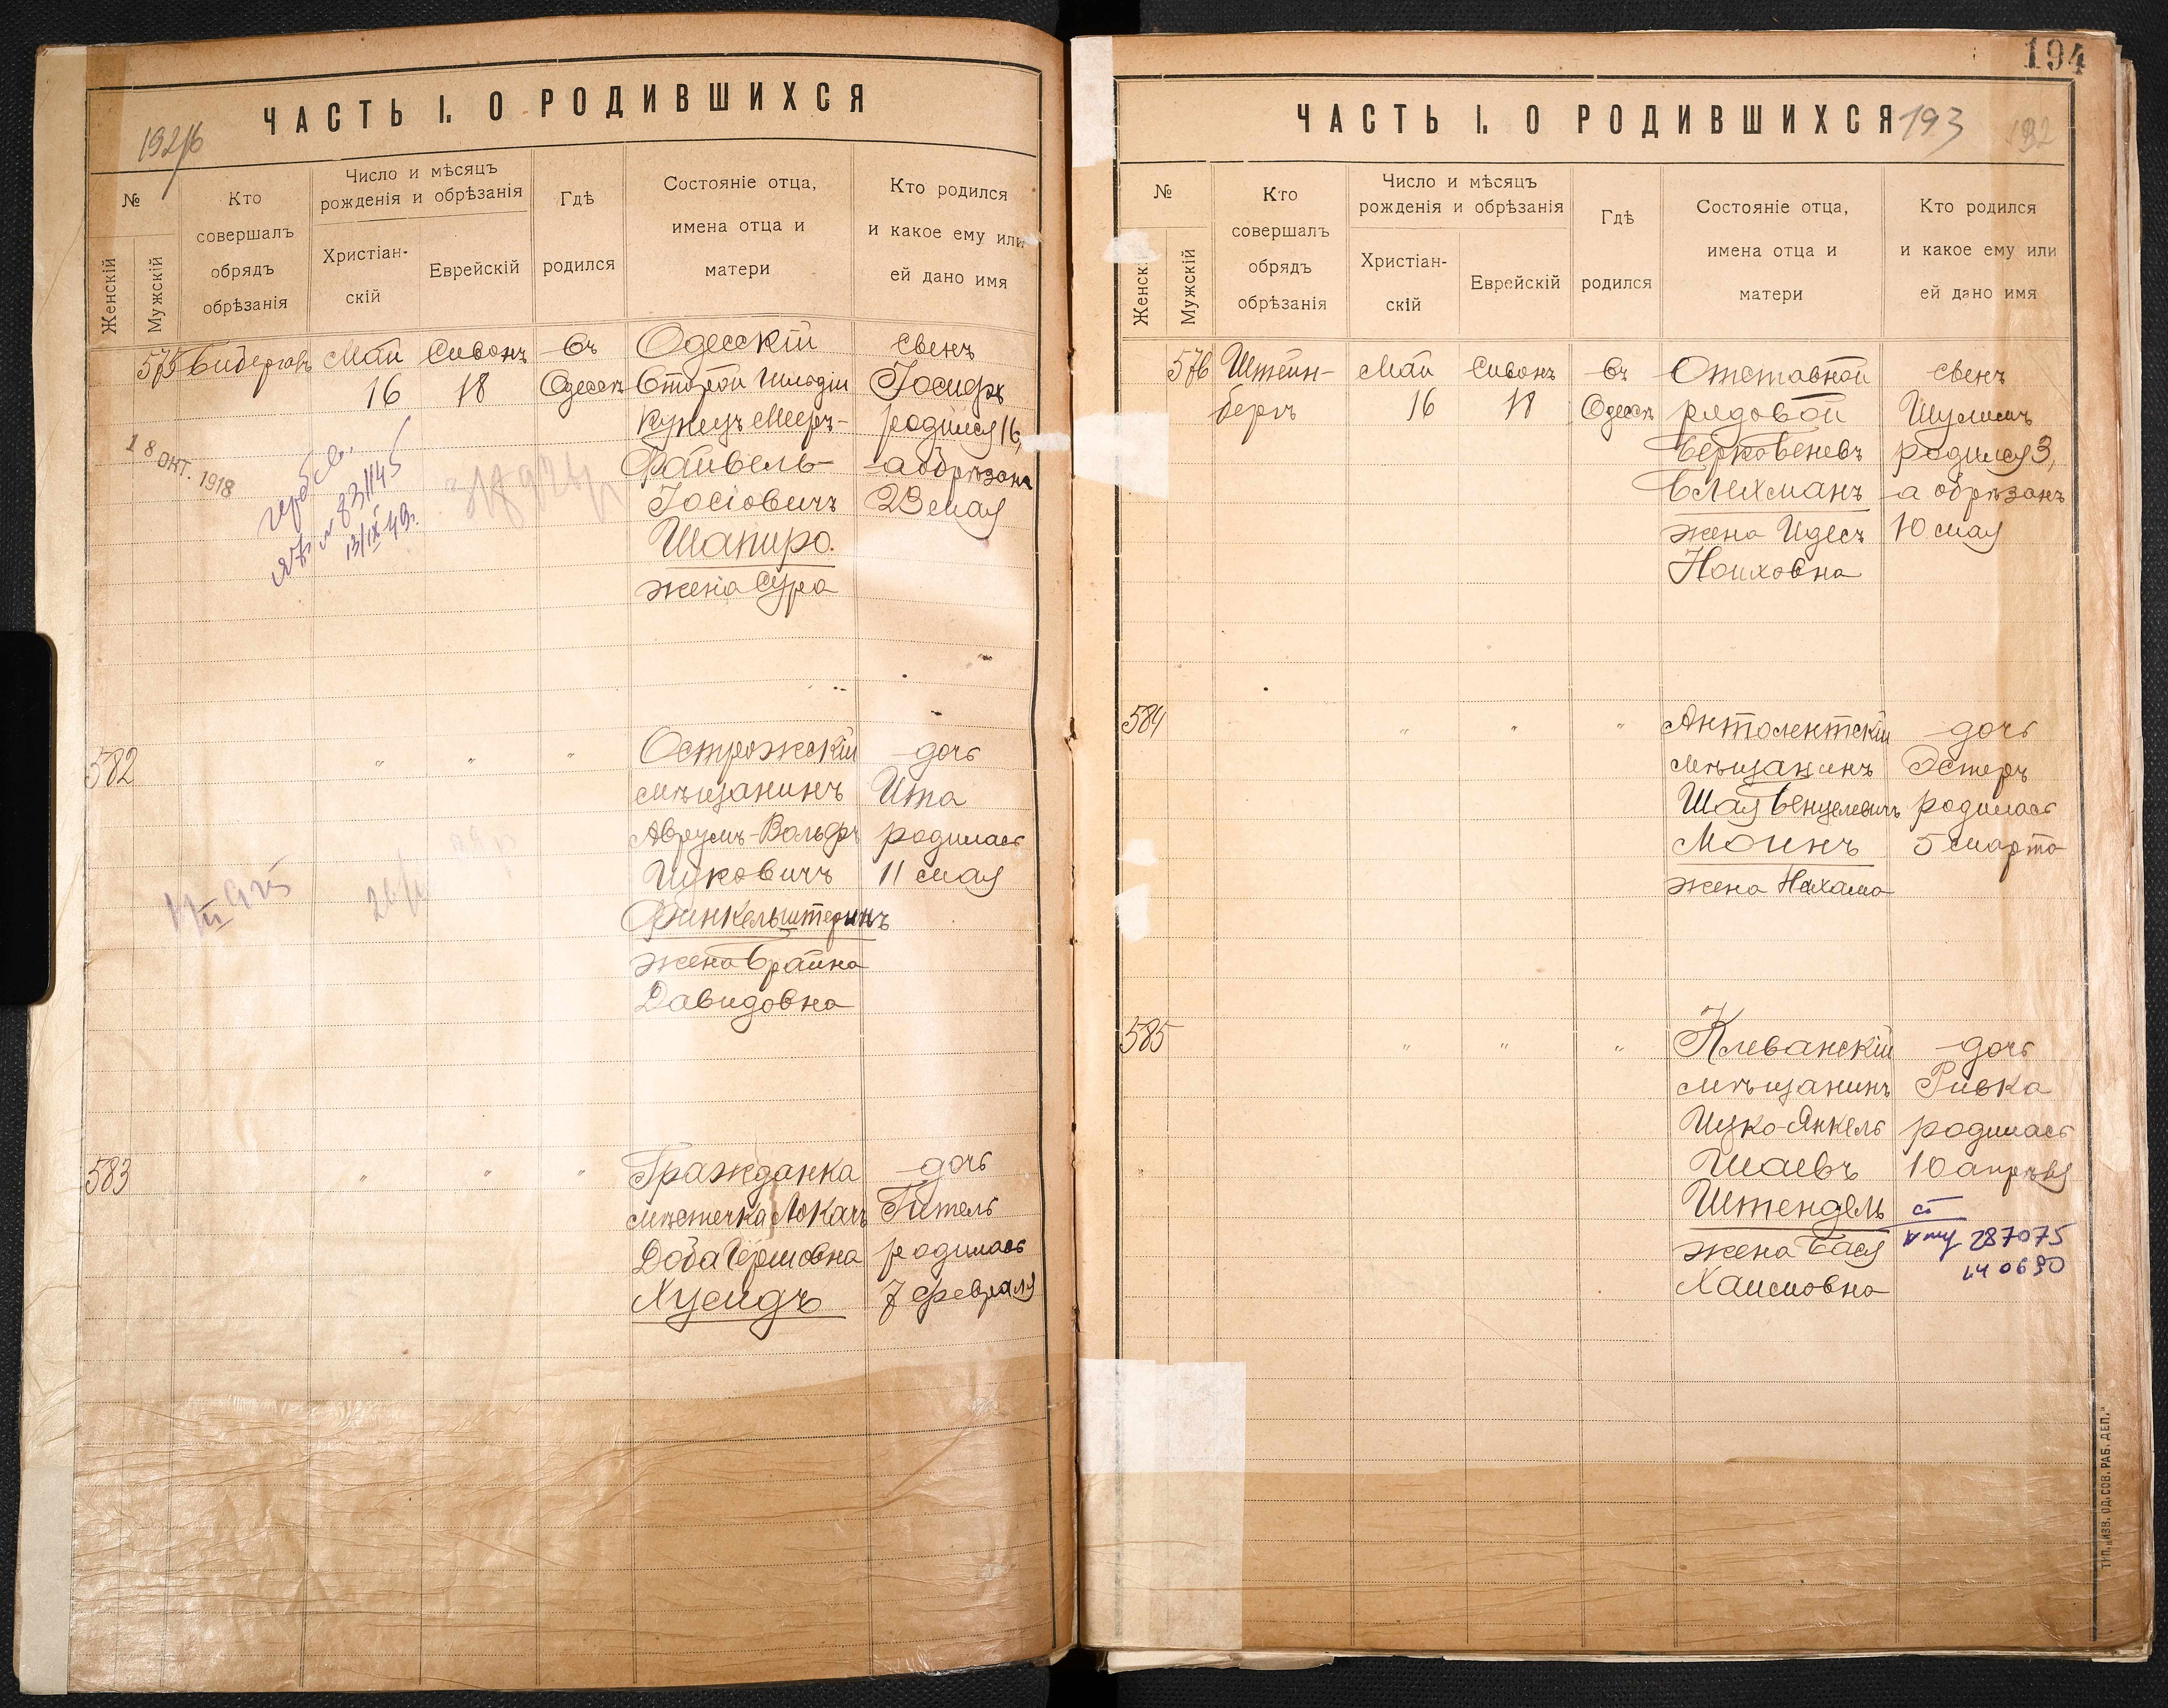 ЧАСТЬ I. О РОДИВШИХСЯ
№
Женскій
Мужскій
Кто
совершалъ
обрядъ
обрѣзанія
Число и мѣсяцъ
рожденія и обрѣзанія
Христіан-
скій
Еврейскій
Гдѣ
родился
Состояніе отца,
имена отца и
матери
Кто родился
и какое ему или
ей дано имя
575
Май
16
Сивонъ
18
Въ
Одессѣ
Одесскій
Второй Гильдіи
Купецъ Мееръ-
Файвель
Іосіовичъ
Шапиро.
жена Сура
сынъ
Іосифъ
родился 16,
а обрѣзанъ
23 мая
18 ОКТ. 1918
№ 831145
13/IX 49.
582
" " "
Острожскій
мѣщанинъ
Аврумъ-Вольфъ
Ицковичъ
Финкельштеинъ
жена Брайна
Давидовна
дочь
Ита
родилась
11 мая
583
" " "
Гражданка
мѣстечка Локачъ
Доба Гершовна
Хусидъ
дочь
Гитель
родилась
7 февраля
194
ЧАСТЬ I. О РОДИВШИХСЯ
193
192
№
Женскій
Мужскій
Кто
совершалъ
обрядъ
обрѣзанія
Число и мѣсяцъ
рожденія и обрѣзанія
Христіан-
скій
Еврейскій
Гдѣ
родился
Состояніе отца,
имена отца и
матери
Кто родился
и какое ему или
ей дано имя
576
Штейн-
бергъ
Май
16
Сивонъ
18
Въ
Одессѣ
Отставной
рядовой
Берко Беневъ
Блехманъ
жена Идесъ
Ноиховна
сынъ
Шулимъ
родился 3,
а обрѣзанъ
10 мая
584
" " "
Антолептскій
мѣщанинъ
Шая Бенцелевичъ
Моинъ
жена Нехама
дочь
Эстеръ
родилась
5 марта
585
" " "
Клеванскій
мѣщанинъ
Ицко-Янкель
Шаевъ
Штендель
жена Бася
Хаимовна
дочь
Ривка
родилась
10 апрѣля
287075
140690
ТИП. „ИЗВ. ОД. СОВ. РАБ. ДЕП."